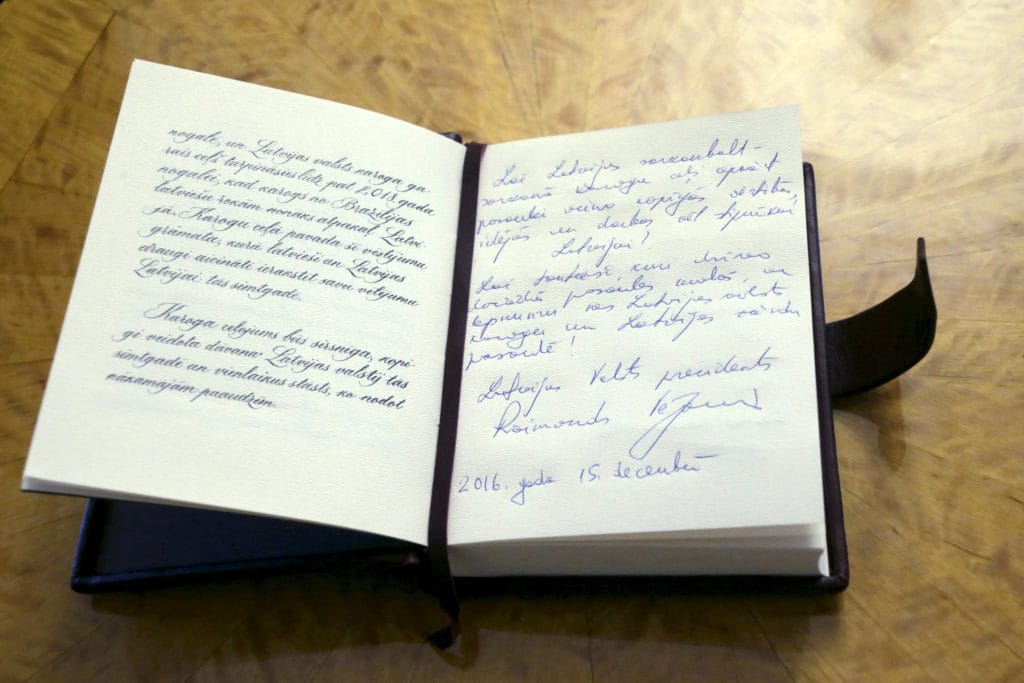 nogalē, un Latvijas valsts karoga ga-
rais ceļš turpināsies līdz pat 2018. gada
nogalei, kad karogs no Brazīlijas
latviešu rokām nonāks atpakaļ Latvi-
jā. Karogu ceļā pavada šī vēstījumu
grāmata, kurā latvieši un Latvijas
draugi aicināti ierakstīt savu vēlējumu
Latvijai tās simtgadē.
Karoga ceļojums būs sirsnīga, kopī-
gi veidota dāvana Latvijas valstij tās
simtgadē un vienlaikus stāsts, ko nodot
nākamajām paaudzēm.
Lai Latvijas sarkanbalt-
sarkanā karoga ceļš apvīt
pasauli vieno kopīgās vērtībās,
idejās un darbos
Latvijai!
Lai tautieši, kuri dzīvo
pasaules malās,
lepnumu nes Latvijas valsts
karogu un Latvijas vārdu
pasaulē!
Latvijas Valsts prezidents
Raimonds Vējonis
2016. gada 15. decembrī